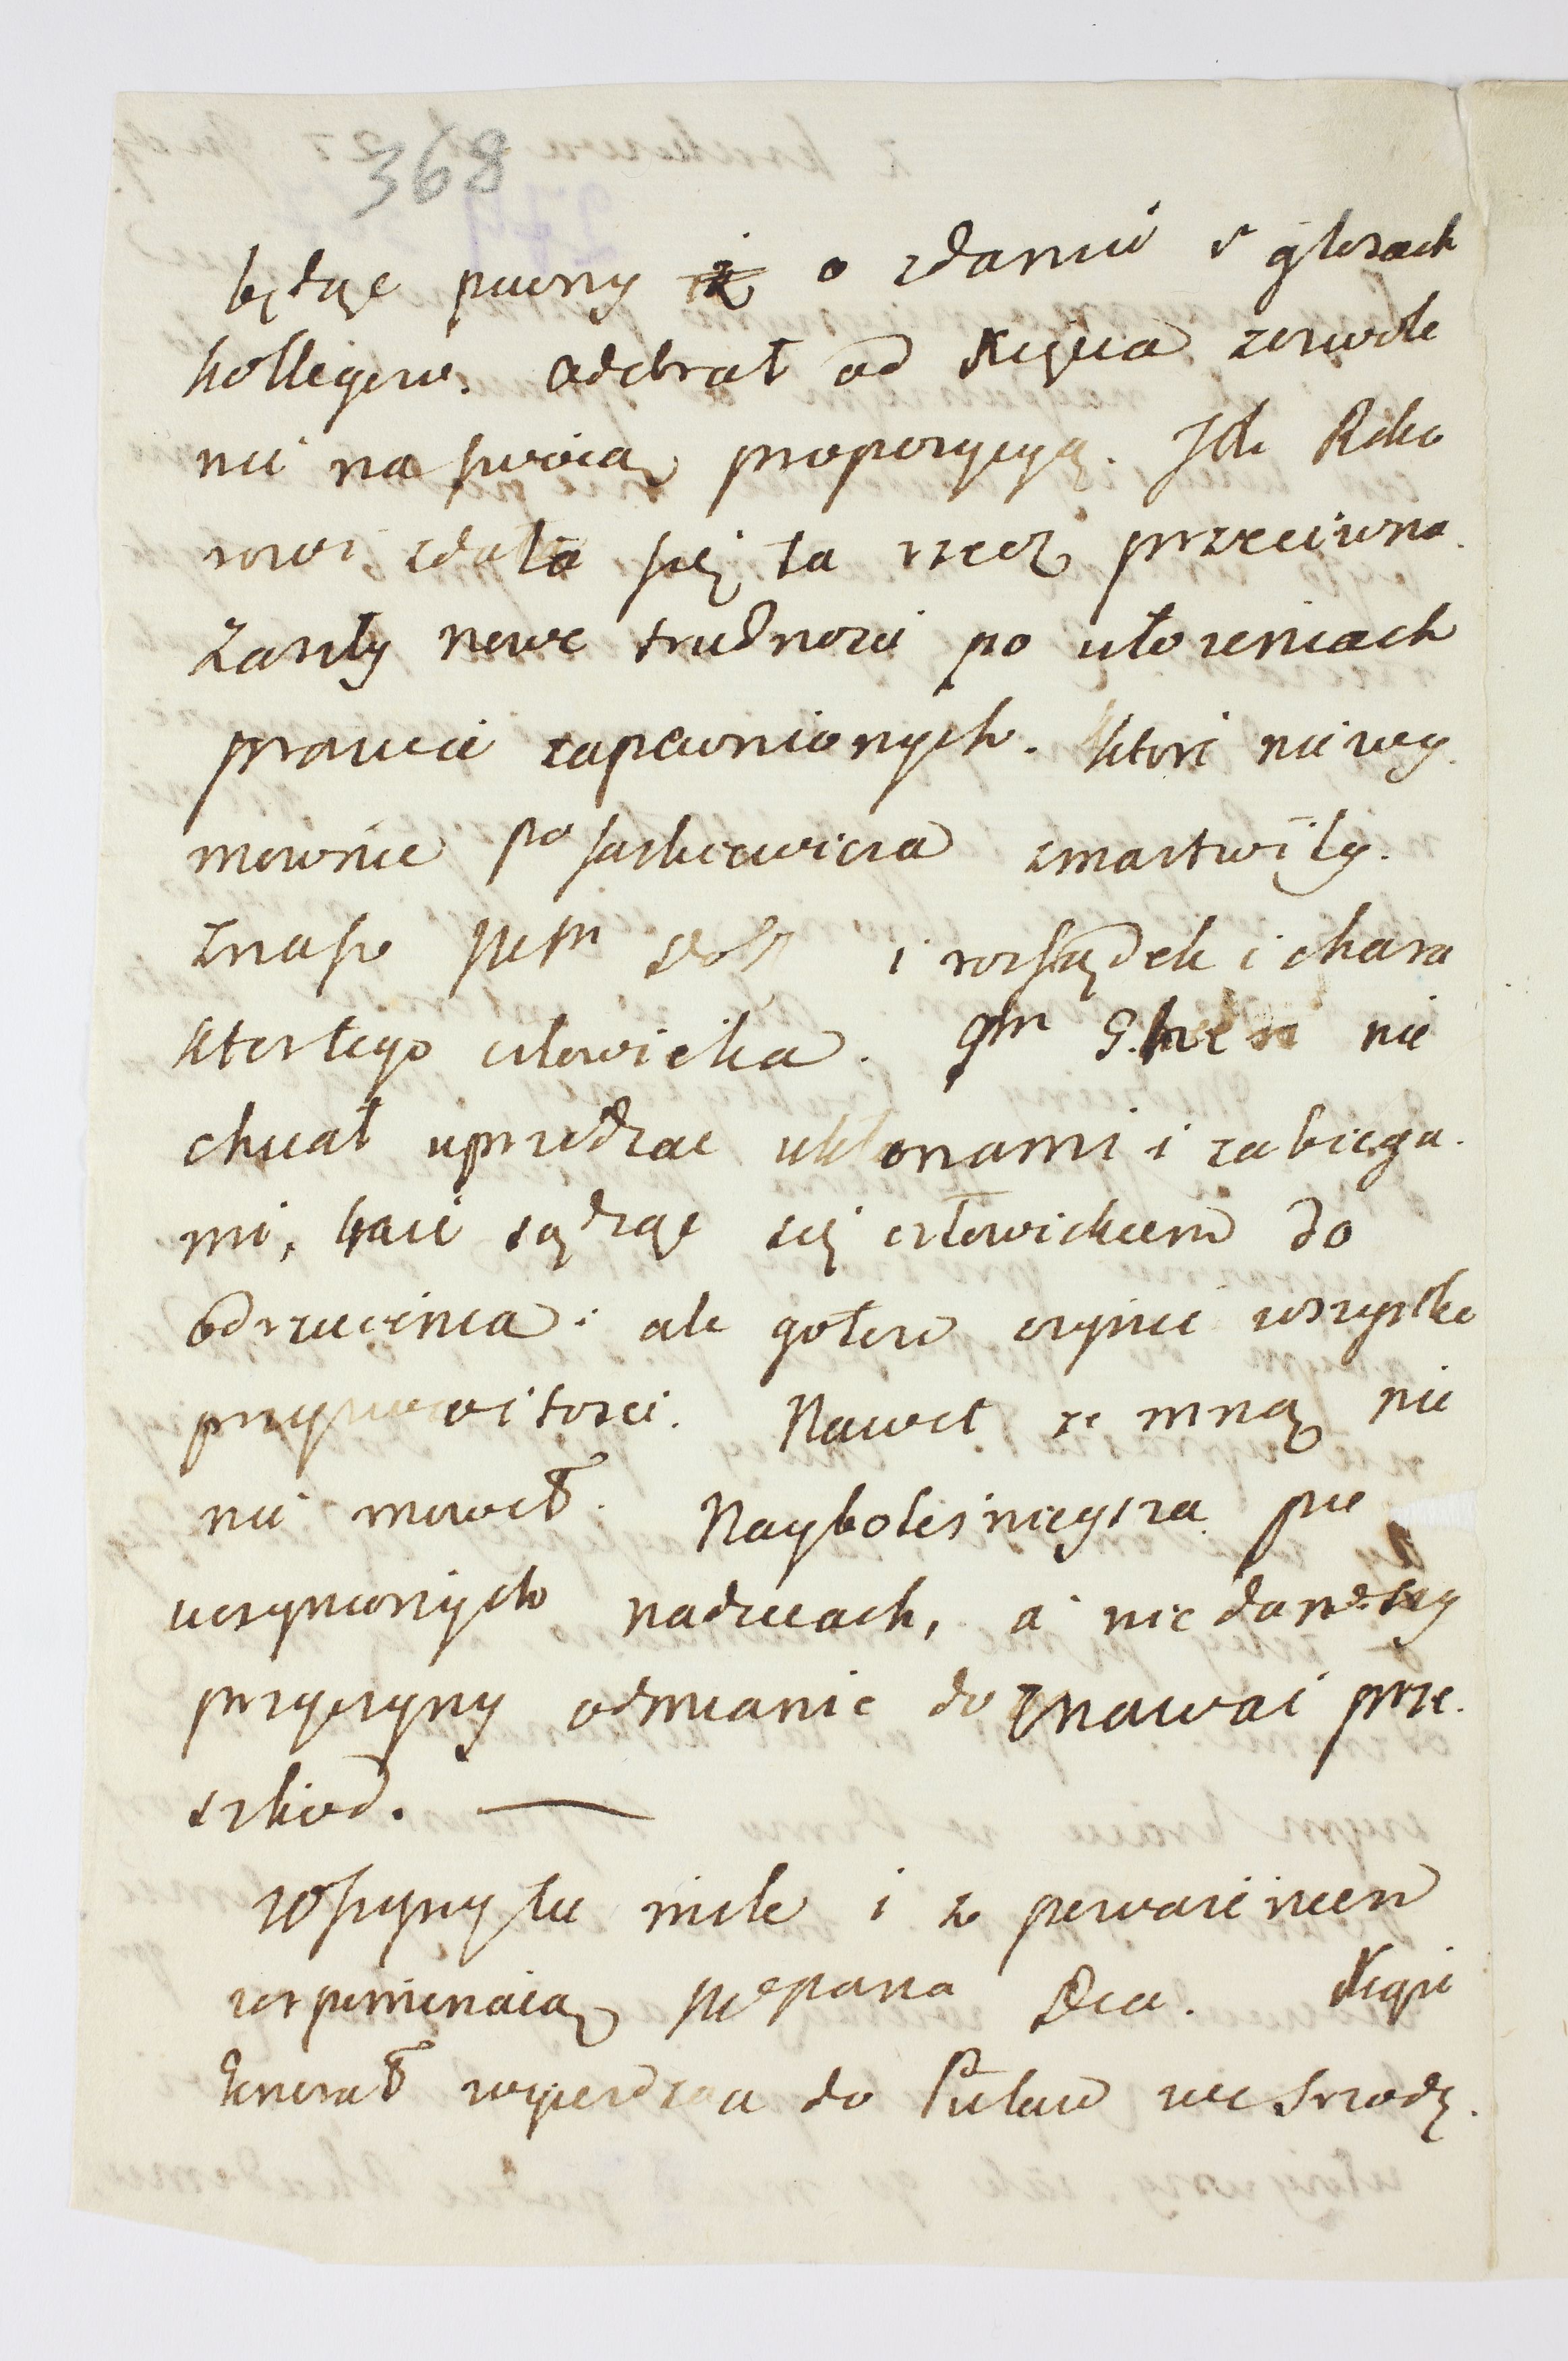 368
będąc pewny o zdaniu i głosach
kollegow. odebrał od Xięcia zezwole
nie na swoią propozycyą. JCh Rekto
rowi zdała się ta rzecz przeciwna.
Zaszły nowe trudnosci po ułozeniach
prawie zapewnionych. ktore niewy
mownie Pa Jaskiewicza zmartwiły.
Znasz i rozsądek i chara
kter tego człowieka. nie
chciał uprzedzac ukłonami i zabiega
mi, bacie sądząc się człowiekiem do
odrzucenia: ale gotow czynic wszystkie
przyzwoitosci. Nawet ze mną nie
nie mowił. Naybolesnieysza po
uczynionych nadzieiach, a nie daney
przyczyny odmianie doznawac prze
szkod. —
Wszyscy tu mile i z powazeniem
wspominaią WPana Dea. Xiąże
Generał wyiezdza do Puław we srzodę.